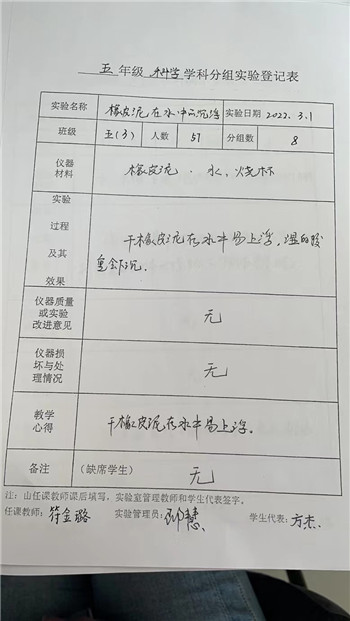 五年级 科学 学科分组实验登记表
实验名称 橡皮泥在水中的沉浮 实验日期 2022.3.1
班级 五(3) 人数 57 分组数 8
仪器
材料
橡皮泥、水,烧杯
实验
过程
及其
效果
干橡皮泥在水中易上浮,湿的
会下沉.
仪器质量
或实验
改进意见
无
仪器损
坏与处
理情况
无
教学
心得
干橡皮泥在水中易上浮。
备注 (缺席学生) 无
注:由任课教师课后填写,实验室管理教师和学生代表签字。
任课教师: 符金璐 实验管理员: 慧 学生代表: 方杰.